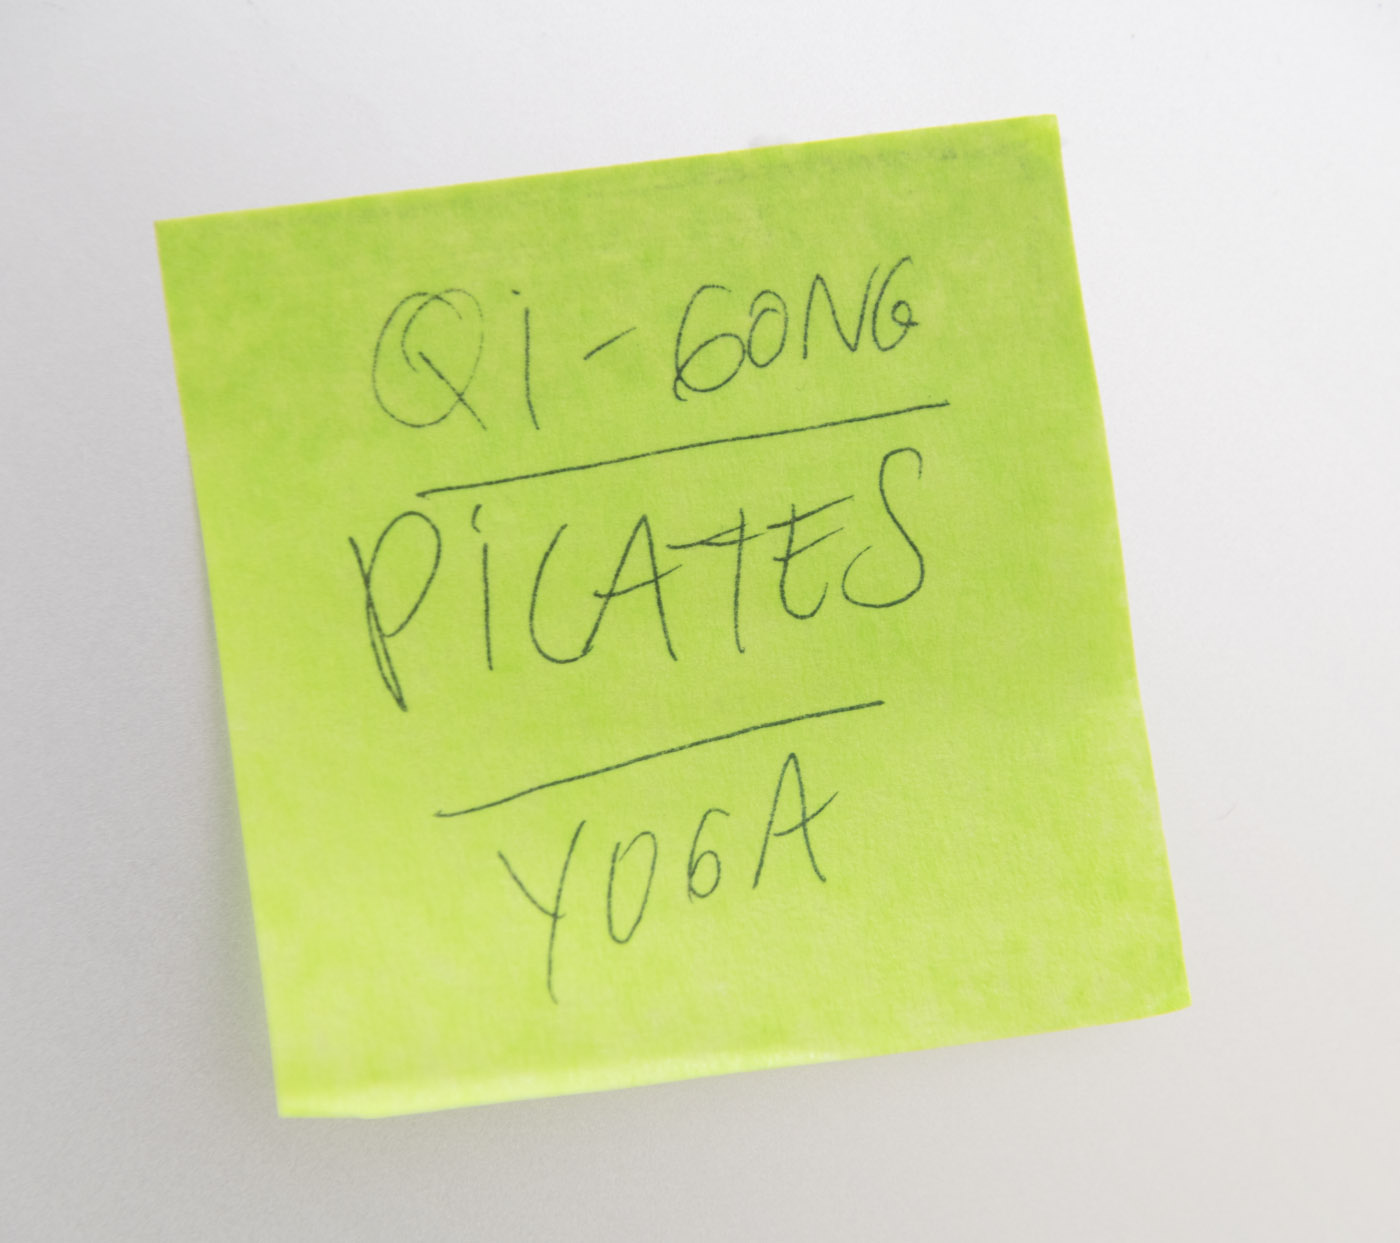 Qi-GONG
PiLATES
YOGA